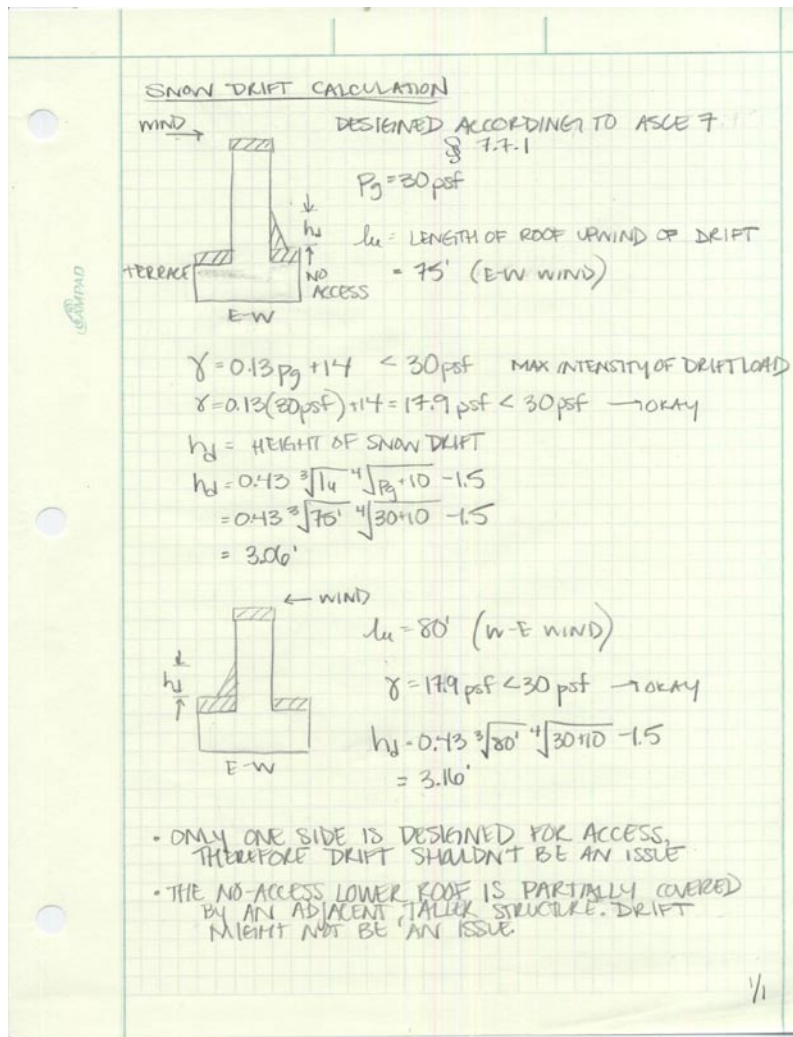 SNOW DRIFT CALCULATION
WIND
DESIGNED ACCORDING TO ASCE 7
§ 7.7.1
Pg = 30 psf
hd
lu = LENGTH OF ROOF UPWIND OF DRIFT
TERRACE
NO ACCESS
= 75' (E-W WIND)
E-W
AMPAD
γ = 0.13 pg + 14 < 30 psf MAX INTENSITY OF DRIFT LOAD
γ = 0.13(30 psf) + 14 = 17.9 psf < 30 psf → OKAY
hd = HEIGHT OF SNOW DRIFT
hd = 0.43 ∛lu ∜Pg+10 - 1.5
= 0.43 ∛75' ∜30+10 - 1.5
= 3.06'
← WIND
lu = 80' (W-E WIND)
hd
γ = 17.9 psf < 30 psf → OKAY
hd = 0.43 ∛80' ∜30+10 - 1.5
E-W
= 3.16'
• ONLY ONE SIDE IS DESIGNED FOR ACCESS,
THEREFORE DRIFT SHOULDN'T BE AN ISSUE
• THE NO-ACCESS LOWER ROOF IS PARTIALLY COVERED
BY AN ADJACENT TALLER STRUCTURE. DRIFT
MIGHT NOT BE AN ISSUE.
1/1